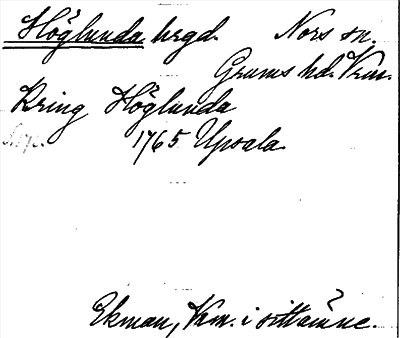 Höglunda hrgd. Nors sn.
Grums hd. Vrm.
Kring Höglunda
1765 Upsala.
Ekman, Vrm. i sitt ämne.